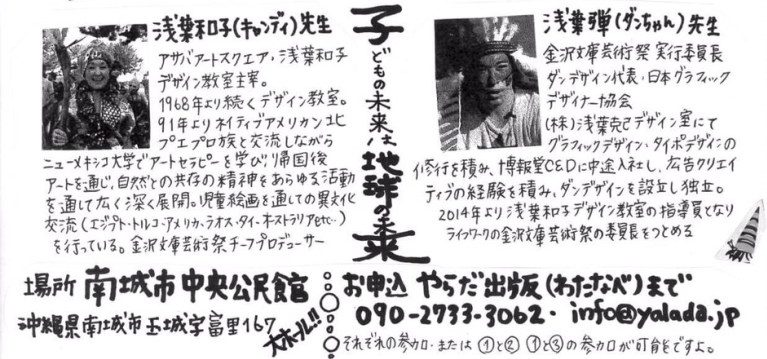 浅葉和子(キャンディ)先生
アサバアートスクエア・浅葉和子
デザイン教室主宰。
1968年より続くデザイン教室。
91年よりネイティブアメリカン北
プエブロ族と交流しながら
ニューメキシコ大学でアートセラピーを学び帰国後
アートを通じ、自然との共存の精神をあらゆる活動
を通して広く深く展開。児童絵画を通しての異文化
交流(エジプト・トルコ・アメリカ・ラオス・タイ・オーストラリアetc…)
を行っている。金沢文庫芸術祭チーフプロデューサー
子どもの未来は地球の未来
浅葉弾(ダンちゃん)先生
金沢文庫芸術祭 実行委員長
ダンデザイン代表・日本グラフィック
デザイナー協会
(株)浅葉克己デザイン室にて
グラフィックデザイン・タイポデザインの
修行を積み、博報堂C&Dに中途入社し、広告クリエイ
ティブの経験を積み、ダンデザインを設立し独立。
2014年より浅葉和子デザイン教室の指導員となり
ライフワークの金沢文庫芸術祭の委員長をつとめる
場所 南城市中央公民館
沖縄県南城市玉城字富里167
大ホール!!
お申込 やらだ出版(わたなべ)まで
090-2733-3062・info@yalada.jp
それぞれの参加・または①と② ①と③の参加が可能ですよ。